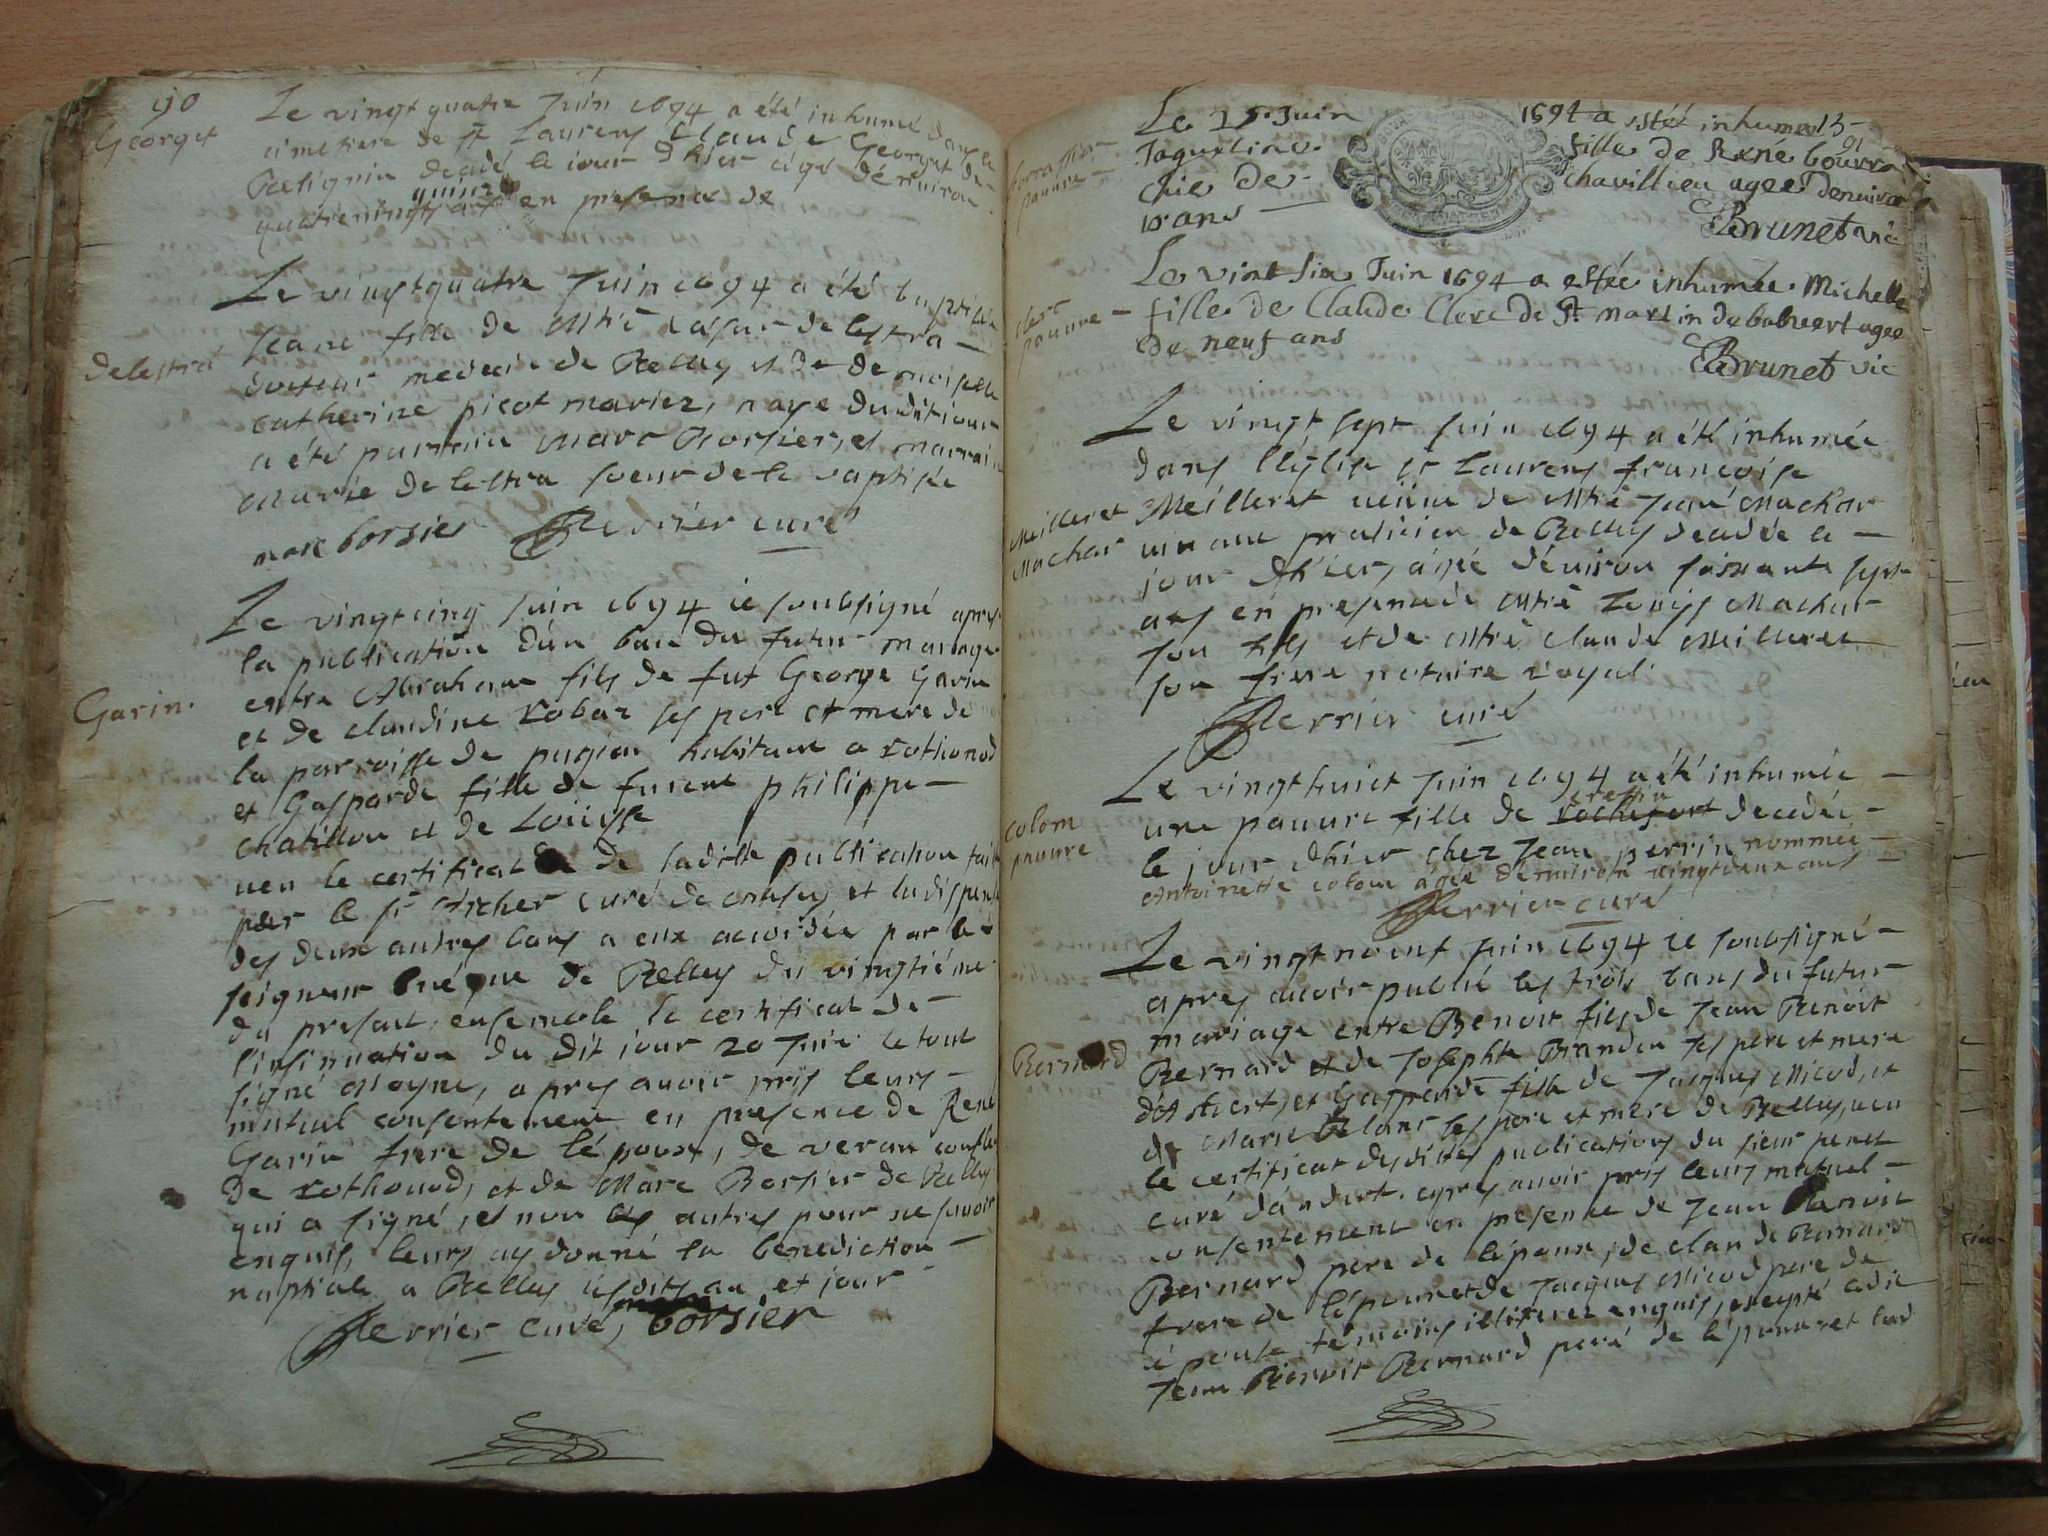 190
Georget
Le vingt quatre Juin 1694 a été inhumé dans le
cimetiere de st Laurens Claude Georget de
decedé le iour d'hier agé d'environ
quinze
quatrevingts ans en presence de
Le vingtquatre Juin 1694 a été baptisée
Jeane fille de Mtre de lestra
delestra
docteur medecin de Belley et de damoiselle
Catherine picot mariez, naye du dit iour
a été parrain Marc Borsier, et marraine
Marie de lestra soeur de la baptisée
marc borsier Perrier curé
Le vingtcinq Juin 1694 ie soubsigné apres
la publication d'un banc du futur mariage
entre Abraham fils de fut George Garin
Garin.
et de claudine robaz ses pere et mere de
la parroisse de pugieu habitant a rothonod
et Gasparde fille de furent philippe
chatillon et de Louïse
veu le certificat de laditte publication faite
par le sr Archer curé de et la dispense
des deux autres bans a eux accordée par le
seigneur eveque de Belley du vingtiéme
du present, ensemble le certificat de
l'insinuation du dit jour 20 Juin le tout
signé Moyne, apres avoir pris leurs
mutuel consentement en presence de René
Garin frere de l'époux, de veran
de rothonod, et de Marc Borsier de Belley
qui a signé, et non les autres pour ne savoir
enquis, leurs ay donné la benediction
nuptiale a Belley lesdits an et jour
Perrier curé, borsier
Le 25 Juin 1694 a estéé inhumee 13
91
Jaqueline fille de René bourra
pauvre
chie de chavillieu agee denviron
10 ans
Brunet vic
Le vint six Juin 1694 a estéé inhumée Michelle
clerc
pauvre
fille de Claude Clerc de St martin de bavert agee
de neuf ans
Brunet vic
Le vingt sept Juin 1694 a été inhumée
dans l'église st Laurens françoise
Meilleret
Meilleret veüve de Mtre Jean Machar
Machar
vivant praticien de Belley decedée le
jour d'hier, agée d'environ soissante sept
ans en presence de Mtre Louis Machar
son fils et de Mtre claude Meilleret
son frere notaire royal
Perrier curé
Le vingthuict Juin 1694 a été inhumée
cressin
une pauvre fille de rochefort decedée
colom
pauvre
le jour d'hier chez Jean perrin nommée
Antoinette colom agée d'environ vingtdeux ans
Perrier curé
Le vingtneuf Juin 1694 ie soubsigné
apres avoir publié les trois bans du futur
mariage entre Benoit fils de Jean Benoit
Bernard
Bernard et de Josephte Brandin ses pere et mere
d'Andert, et Gasparde fille de Jacques Micod, et
de Marie Blanc ses pere et mere de Belley, veu
le certificat desdites publications du sieur penet
curé d'andert. apres avoir pris leurs mutuel
consentement en presence de Jean Benoit
Bernard pere de l'époux, de claude Bernard
frere de l'époux et de Jacques Micod pere de
l'épouse, témoins illiterez enquis, excepté ledit
Jean Benoit Bernard pere de l'époux et lad